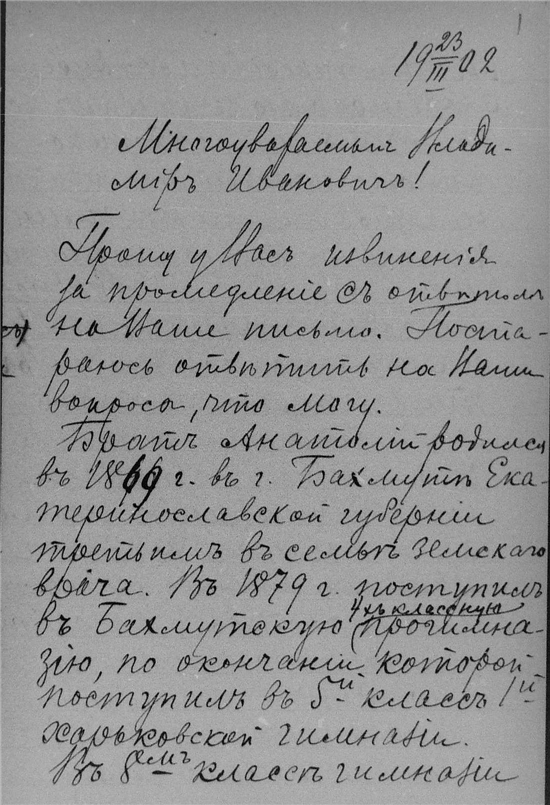 1
19 23/III 02
Многоуважаемый Влади-
мiръ Ивановичъ!
Прошу у Васъ извиненiя
за промедленiе съ отвѣтомъ
на Ваше письмо. Поста-
раюсь отвѣтить на Ваши
вопросы, что могу.
Братъ Анатолiй родился
въ 1869 г. въ г. Бахмутѣ Ека-
теринославской губернiи
третьимъ въ семьѣ земскаго
врача. Въ 1879 г. поступилъ
4хъ классную
въ Бахмутскую прогимна-
зiю, по окончанiи которой
поступилъ въ 5й классъ 1й
харьковской гимназiи.
Въ 8емъ классѣ гимназiи